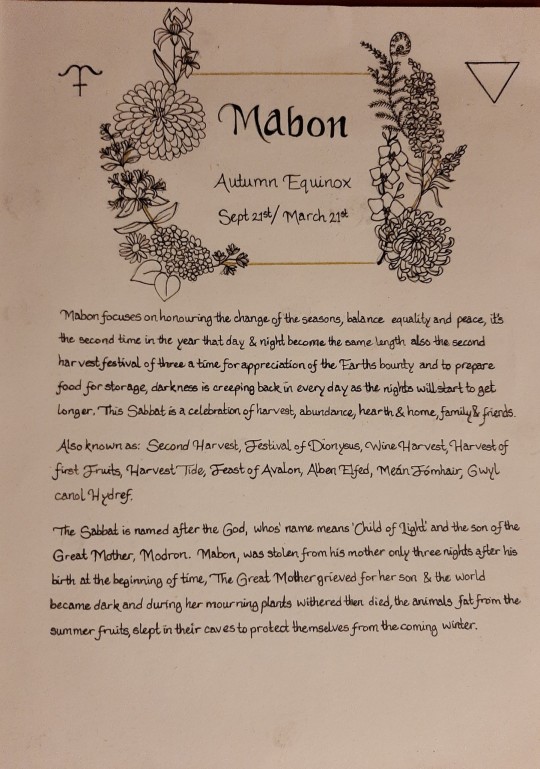 Mabon
Autumn Equinox
Sept 21st/ March 21st
Mabon focuses on honouring the change of the seasons, balance equality and peace, it's
the second time in the year that day & night become the same length also the second
harvest festival of three a time for appreciation of the Earths bounty and to prepare
food for storage, darkness is creeping back in every day as the nights will start to get
longer. This Sabbat is a celebration of harvest, abundance, hearth & home, family & friends.
Also known as: Second Harvest, Festival of Dionysus, Wine Harvest, Harvest of
first Fruits, Harvest Tide, Feast of Avalon, Alben Elfed, Meán Fómhair, Gwyl
canol Hydref.
The Sabbat is named after the God, whos' name means 'Child of Light' and the son of the
Great Mother, Modron. Mabon, was stolen from his mother only three nights after his
birth at the beginning of time, The Great Mother grieved for her son & the world
became dark and during her mourning plants withered then died, the animals, fat from the
summer fruits, slept in their caves to protect themselves from the coming winter.